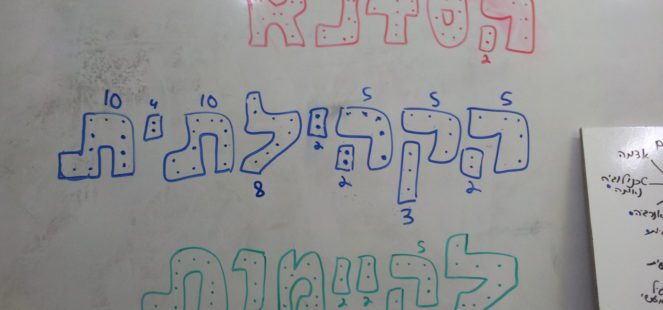 הסדנא
2
5 5 5 10 4 10
הקהילתית
2 3 2 2 8
5
לקיימות
2 2
אדמה
טכנולוגיה
נאותה